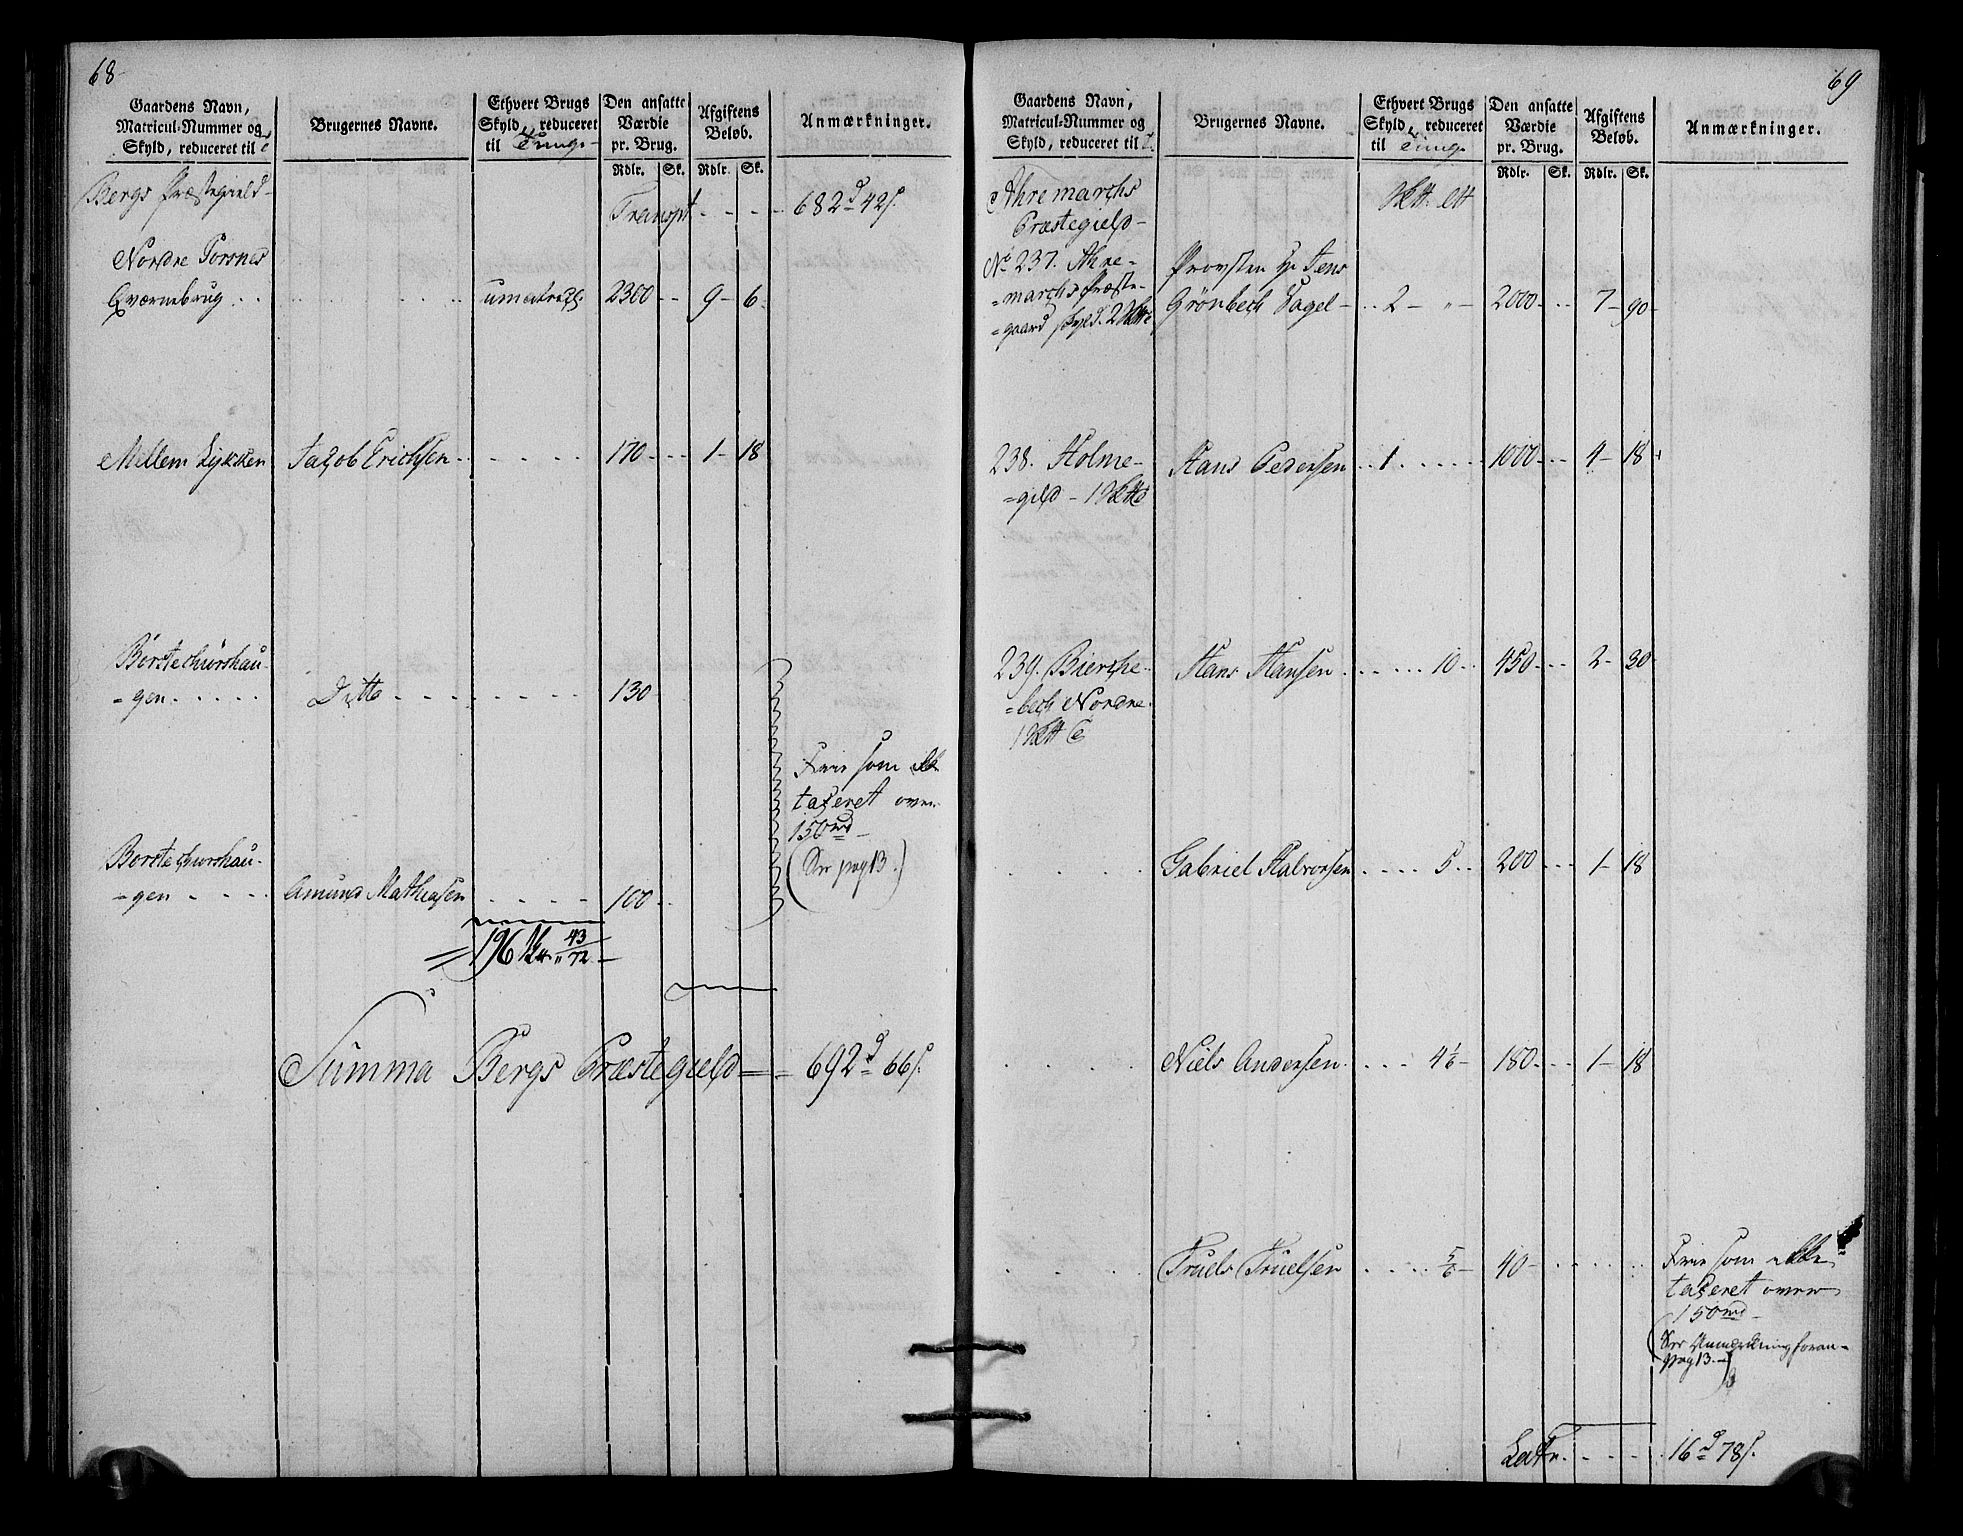 68
Gaardens Navn, Matricul-Nummer og Skyld, reduceret til
Brugernes Navne.
Ethvert Brugs Skyld, reduceret til Tunge
Den ansatte Værdie pr. Brug.
Afgiftens Beløb.
Anmærkninger.
Rdlr. Sk. Rdlr. Sk.
Bergs Præstegield
Transpt - - - - 682 d 42 s.
Nordre Torsnes
Qværnebrug . . . . . . . 2300 - - 9 - 6
Mellem Kiøkken Jacob Erichsen . . . . . 170 - - 1 - 18
Börstechürshau-
=gen . . . . . Ditto - - - - - - - 130
Frie som ikke
taxeret over
150 rd
(See pag 13.)
Borstechurshau-
=gen - . . . Amund Mathiasen - . . . . 100
= 196 43/72
Summa Bergs Præstegield = - 692 d 66 s.
69
Gaardens Navn, Matricul-Nummer og Skyld, reduceret til
Brugernes Navne.
Ethvert Brugs Skyld, reduceret til Tung.
Den ansatte Værdie pr. Brug.
Afgiftens Beløb.
Anmærkninger.
Rdlr. Sk. Rdlr. Sk.
Ahremarchs
Præstegield -
No 237. Ahre-
=marchs Præste-
=gaard skyld. 2
Provsten Hr Jens
Grönbech Vogel - . . 2 - " - 2000 - . . 7 - 90
238. Holme-
=gild - 1
Hans Pedersen . . 1 . . . . . 1000 - . . 4 - 18
239. Bierche-
=bech Nordre
1
Hans Hansen . . . . . . 10 . . 450 - . . 2 - 30
Gabriel Halvorsen . . . . 5 . . 200 - - - 1 - 18
Niels Andersen . . . . 4 1/6 - 180 - . . 1 - 18
Truels Truelsen . . . . 5/6 - 40 - . . . . .
Frie som ikke
taxeret over
150 rd -
(See Anmærkning foran
pag 13. -)
Latr. . . . . . 16 d 78 s.